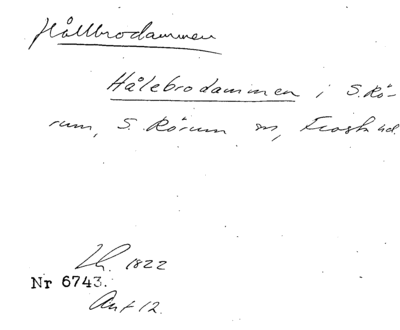 Hållbrodammen
Hålebrodammen i S. Rö-
rum, S. Rörum sn, Frosta hd.
Lh. 1822
Nr 6743.
Ant 12.